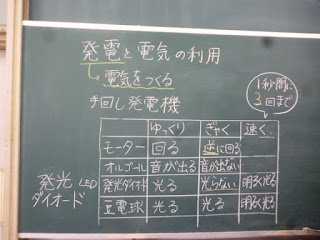 発電と電気の利用
電気をつくる
手回し発電機
1秒間に
3回まで
ゆっくり ぎゃく 速く
モーター 回る 逆に回る
オルゴール 音が出る 音が出ない
発光ダイオード LED
発光ダイオード 光る 光らない 明るく光る
豆電球 光る 光る 明るく光る